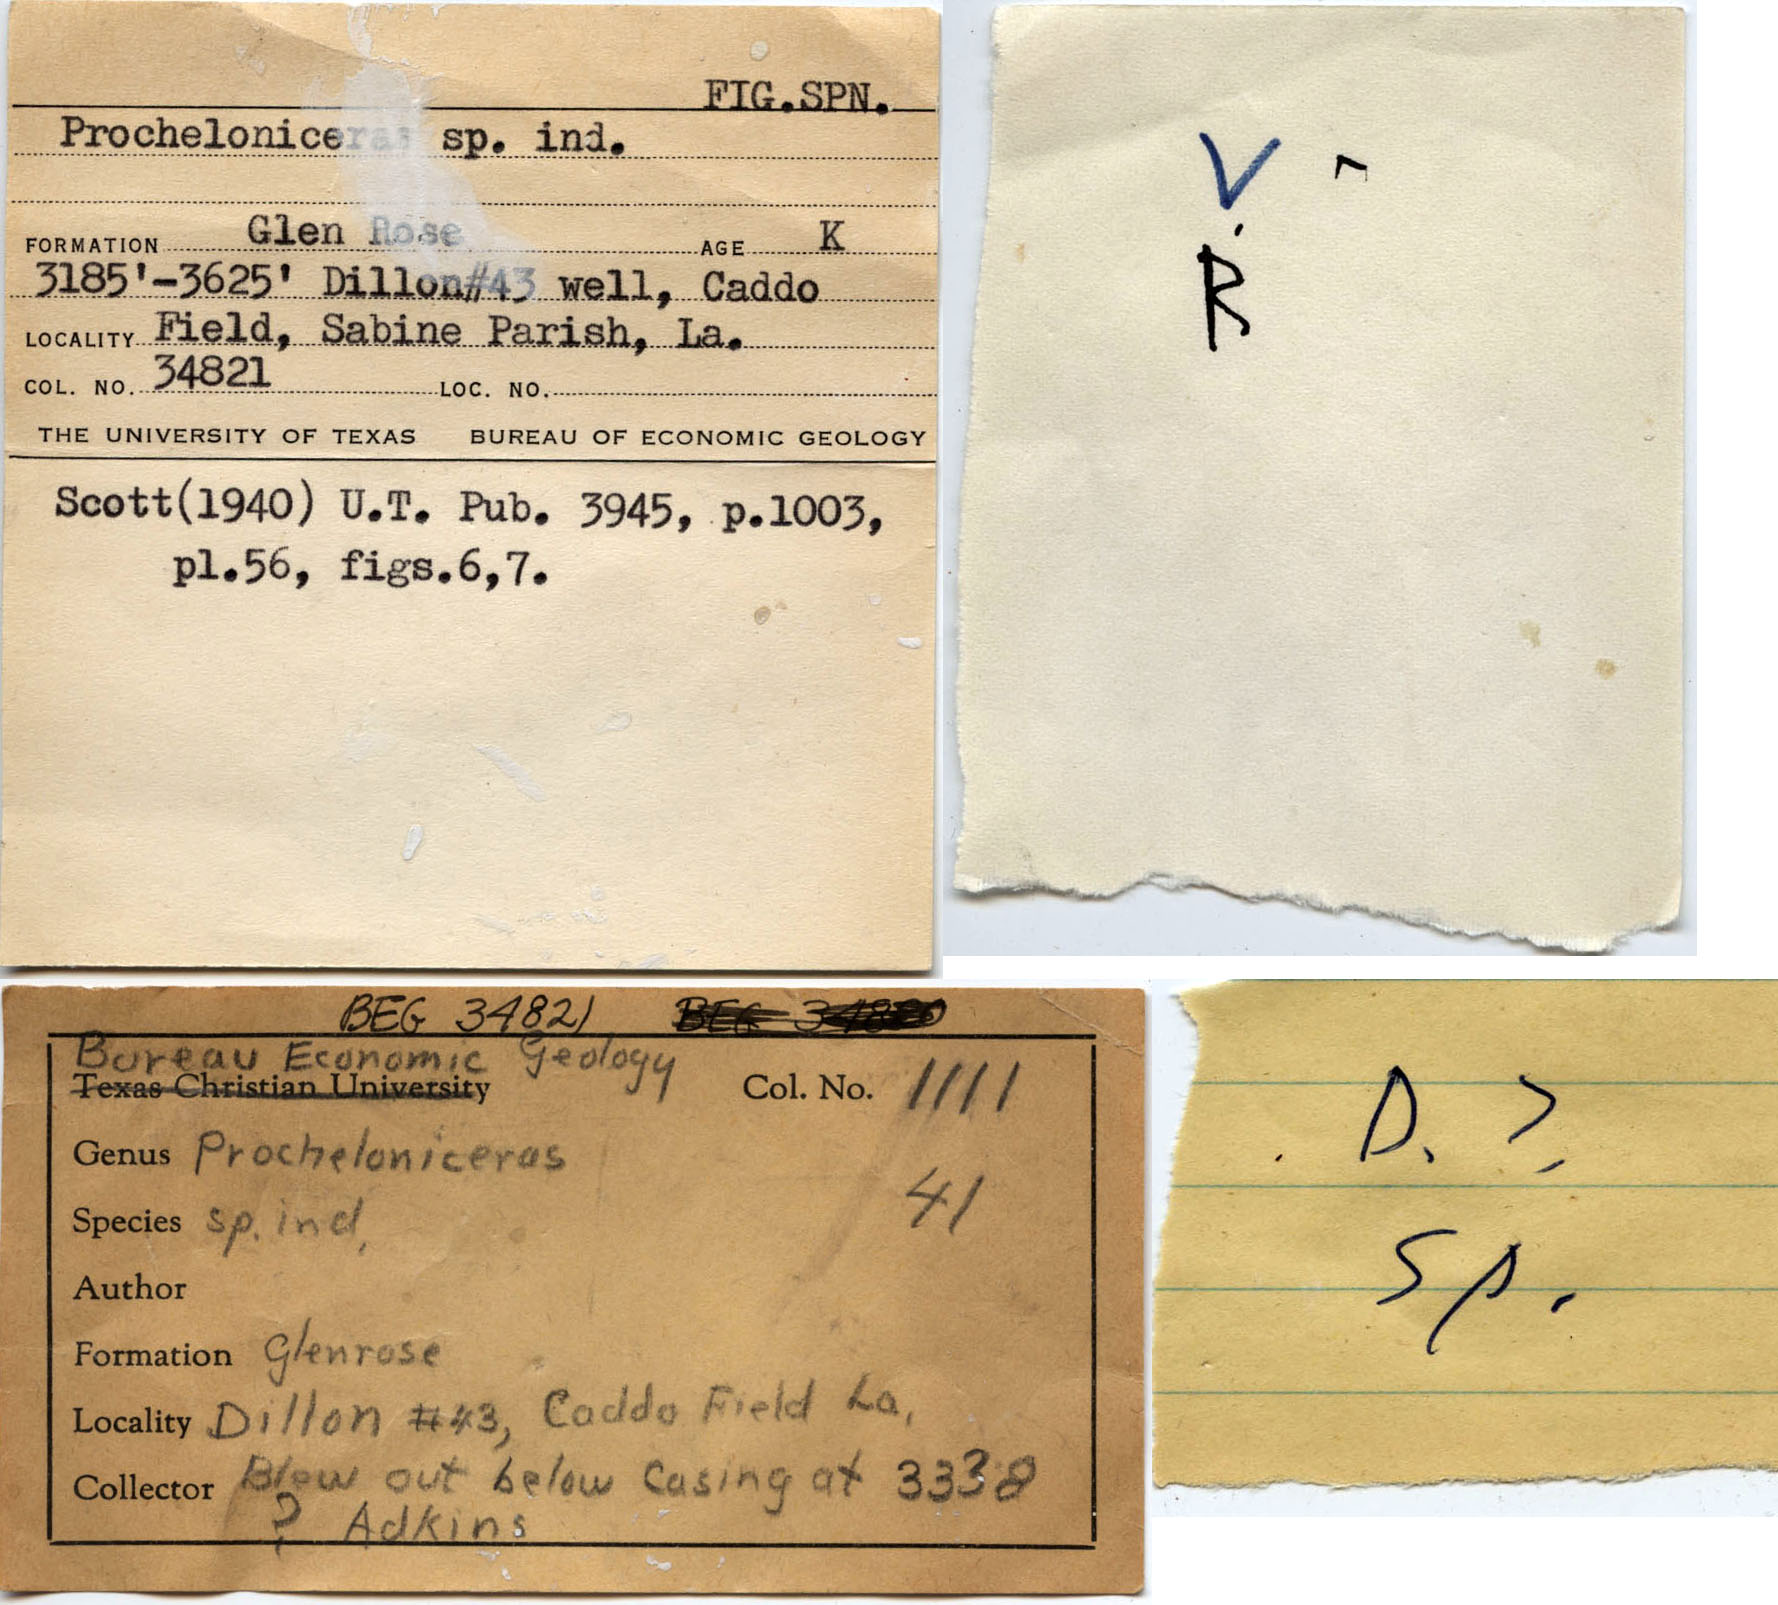 FIG.SPN.
Procheloniceras sp. ind.
FORMATION Glen Rose AGE K
3185'-3625' Dillon#43 well, Caddo
LOCALITY Field, Sabine Parish, La.
COL. NO. 34821 LOC. NO.
THE UNIVERSITY OF TEXAS BUREAU OF ECONOMIC GEOLOGY
Scott(1940) U.T. Pub. 3945, p.1003,
pl.56, figs.6,7.
V.
R
BEG 34821 BEG 34820
Bureau Economic Geology
Texas Christian University Col. No. 1111
Genus Procheloniceras
41
Species sp. ind.
Author
Formation Glenrose
Locality Dillon #43, Caddo Field La.
Collector Blew out below casing at 3338
? Adkins
D. >.
sp.